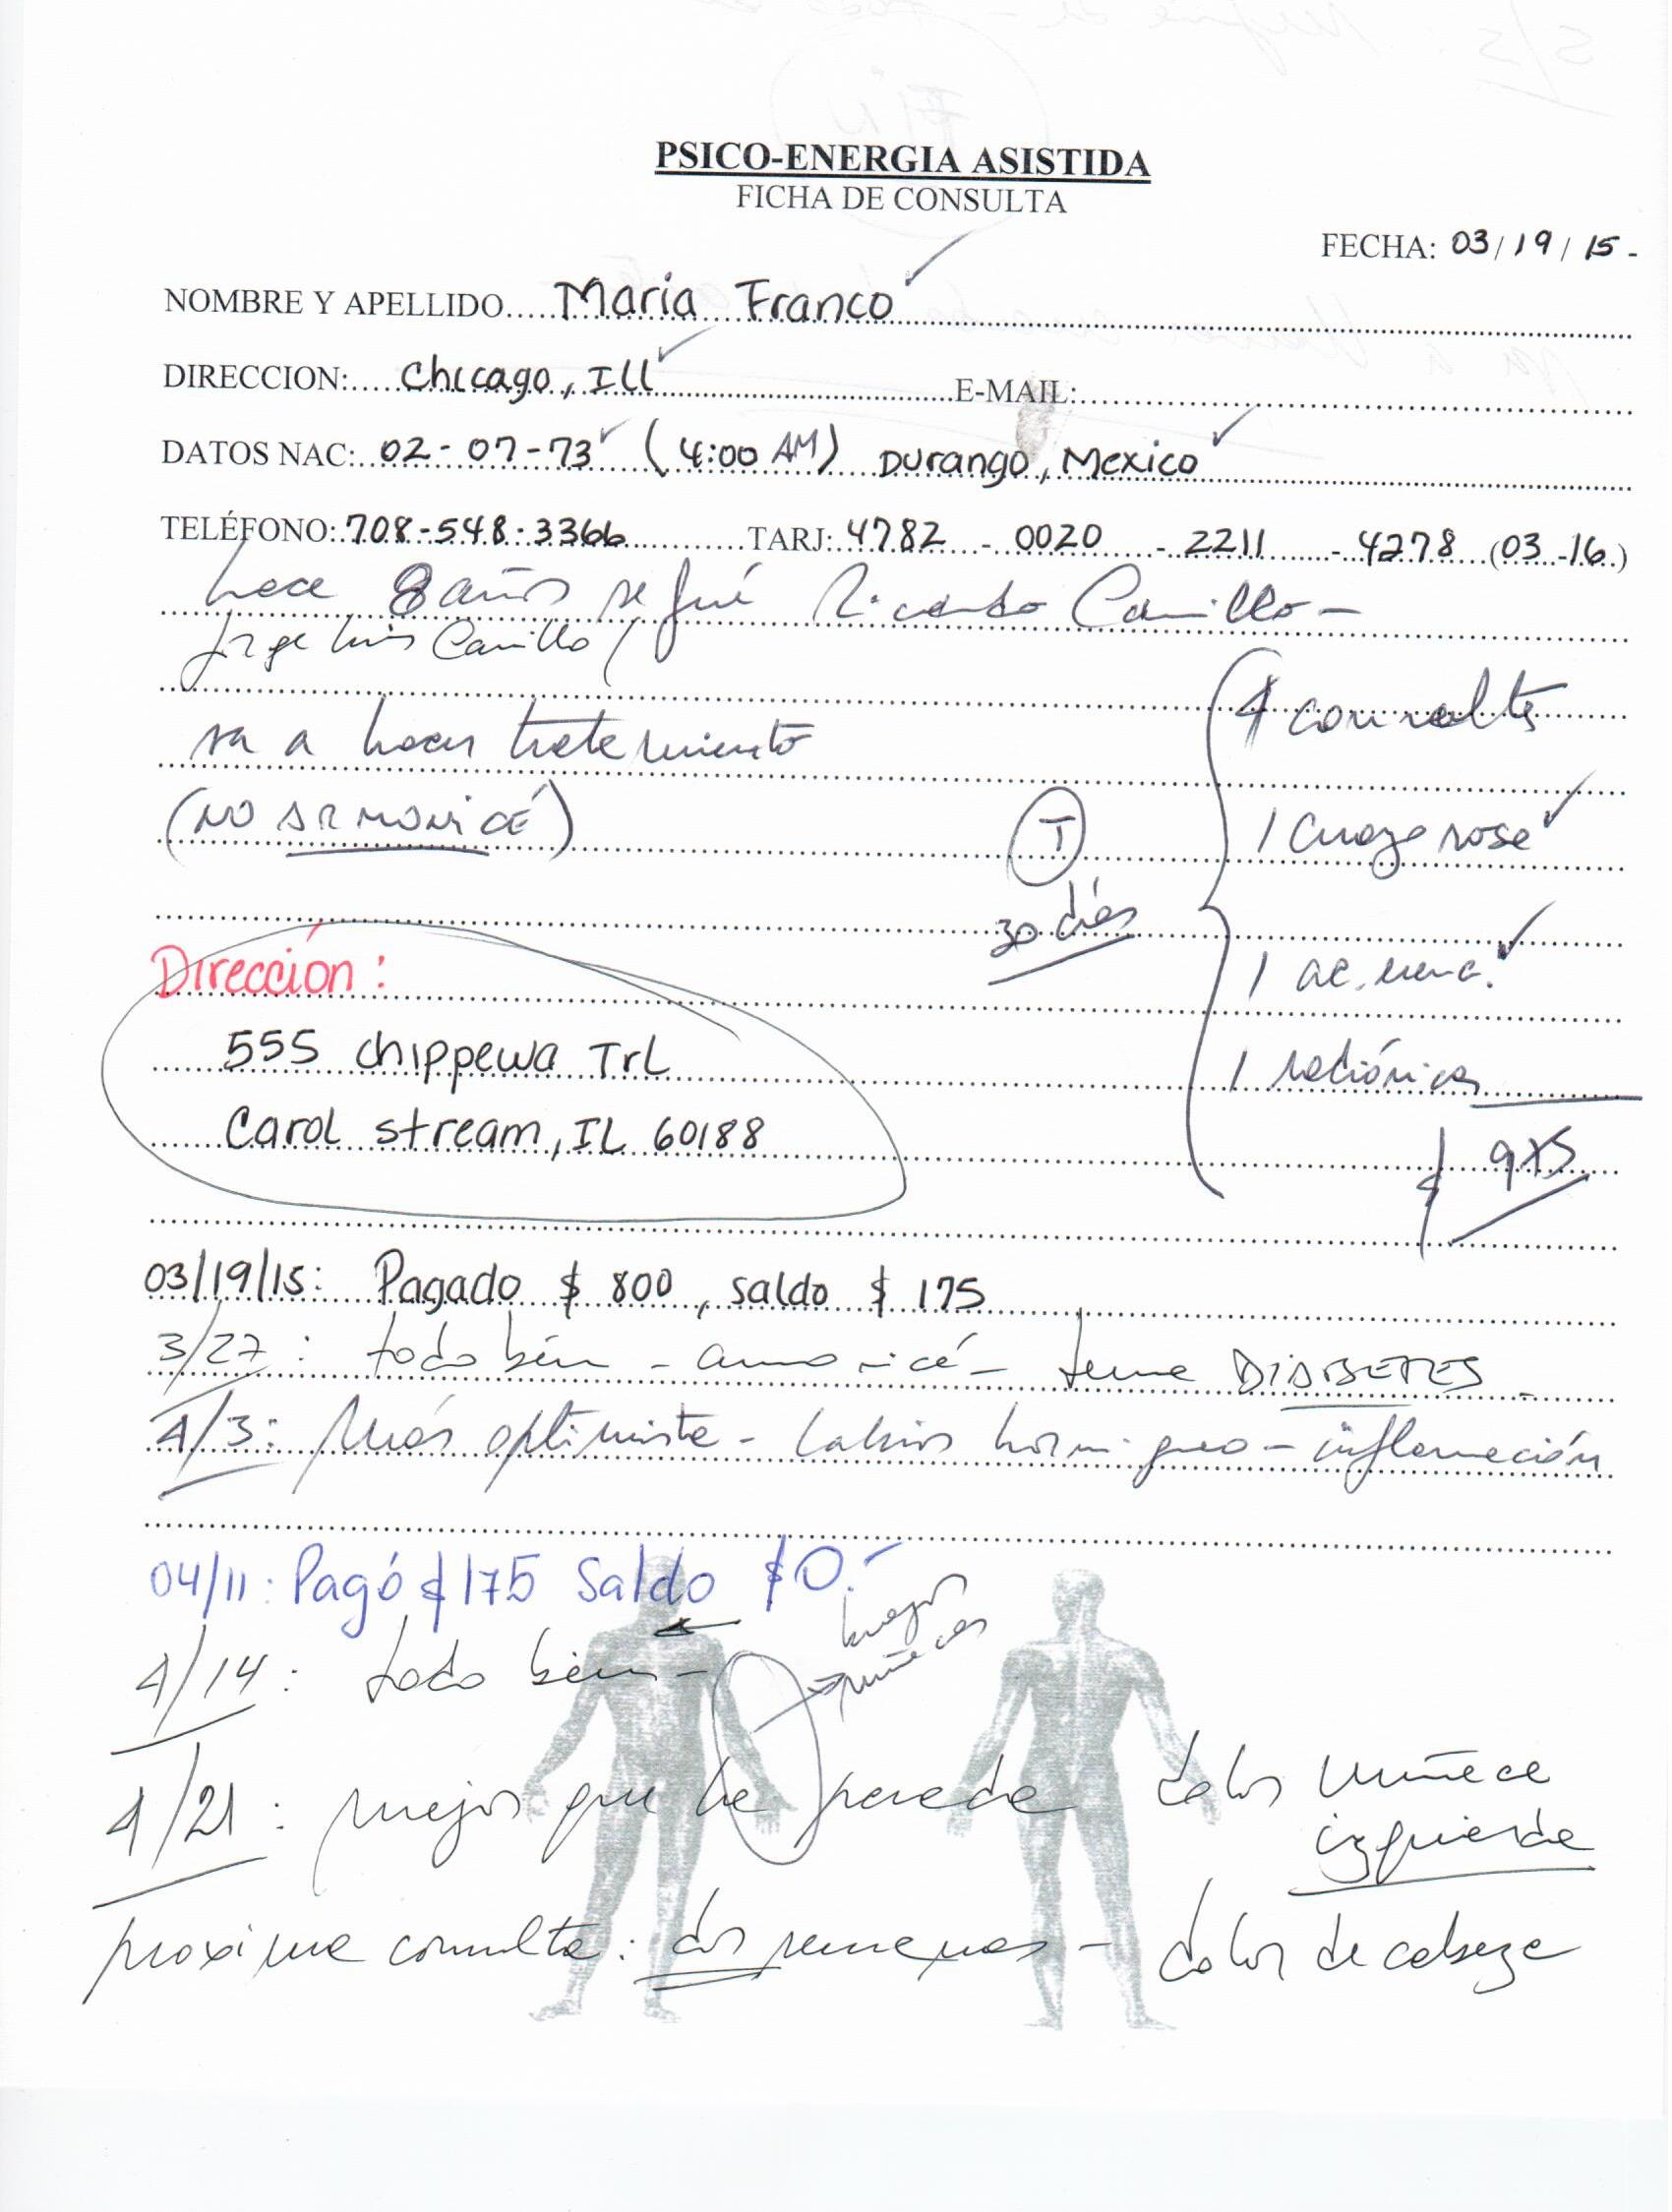 PSICO-ENERGIA ASISTIDA
FICHA DE CONSULTA
FECHA: 03/19/15-
NOMBRE Y APELLIDO..... Maria Franco
DIRECCION: Chicago, Ill E-MAIL:
DATOS NAC: 02-07-73 (4:00 AM) Durango, Mexico
TELÉFONO: 708-548-3366 TARJ: 4782 - 0020 - 2211 - 4278 (03-16)
hace 8 años se fué Ricardo Carrillo -
Jorge Luis Carrillo
va a hacer tratamiento
(NO ARMONICÉ)
T
30 días
4 consultas
1 cuarzo rosa
1
1 radiónica
$ 975
Dirección:
555 chippewa Trl
Carol stream, IL 60188
03/19/15: Pagado $ 800, saldo $ 175
3/27: todo bien - armonicé - teme DIABETES -
4/3: Más optimista - labios hormigueo - inflamación
04/11: Pagó $175 Saldo $0.-
4/14: todo bien -
brazos
muñecas
4/21: mejor que la pasada dolor muñeca
izquierda
proxima consulta: dos semanas - dolor de cabeza